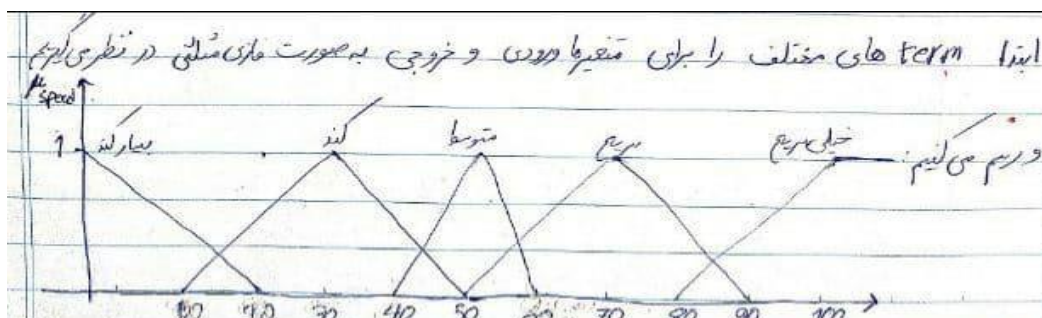 ابتدا term های مختلف را برای متغیرها ورودی و خروجی به صورت فازی مثلثی در نظر می‌گیریم
و رسم می‌کنیم:
μ speed
1 بسیار کند کند متوسط سریع خیلی سریع
10 20 30 40 50 60 70 80 90 100